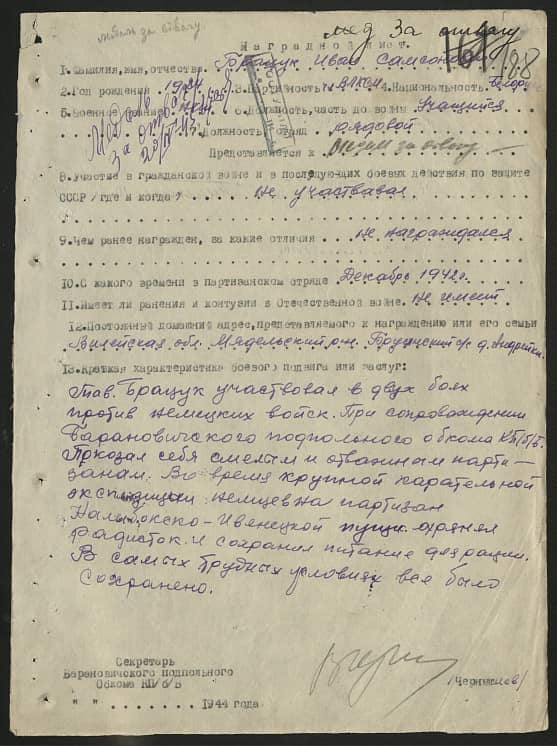 мед за отвагу
188
Наградной лист.
1. Фамилия, имя, отчество Брацук Иван Самсонов
2. Год рождения 1924 3. Партийность ВЛКСМ 4. Национальность белорус
5. Военное звание 6. Должность, часть до войны Учащийся
Медаль
за отвагу
Должность отряд рядовой
Представляется к Медали за отвагу
8. Участие в гражданской войне и в последующих боевых действия по защите
СССР /где и когда/ Не участвовал
9. Чем ранее награжден, за какие отличия Не награждался
10. С какого времени в партизанском отряде Декабрь 1942г.
11. Имеет ли ранения и контузии в Отечественной войне. Не имеет
12. Постоянный домашний адрес, представляемого к награждению или его семьи
Вилейская обл. Мядельский р-н. д. Андрейки
13. Краткая характеристика боевого подвига или заслуг:
Тов. Брацук участвовал в двух боях
против немецких войск. При сопровождении
Барановичского подпольного обкома КП/б/Б.
Показал себя смелым и отважным парти-
заном. Во время крупной карательной
экспедиции немцев на партизан
Налибокско-Ивенецкой пущи охранял
радисток и сохранил питание для рации.
В самых трудных условиях все было
сохранено.
Секретарь
Барановичского подпольного
Обкома КП/б/Б
/Чернышов/
" " 1944 года